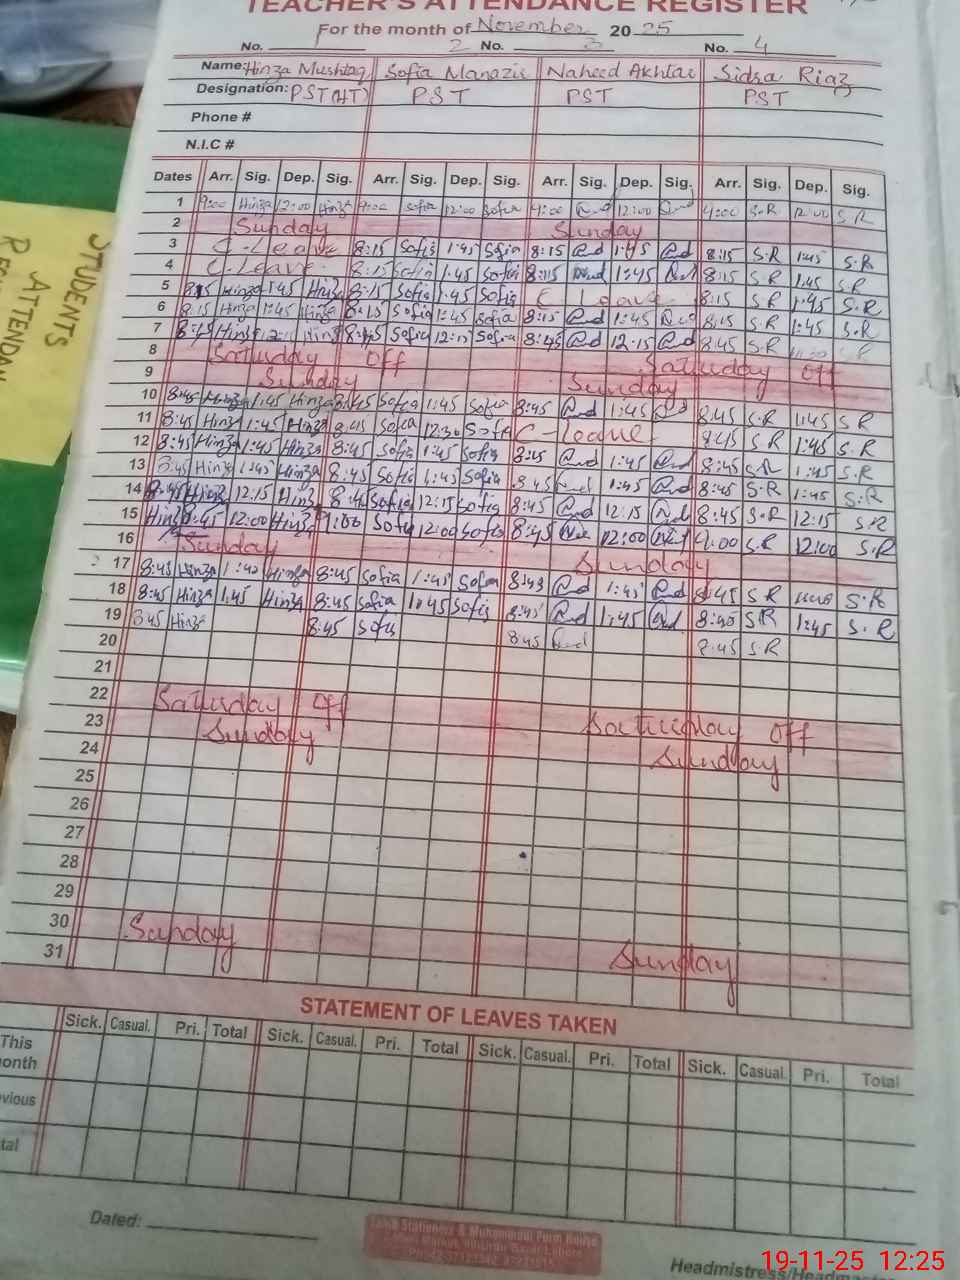 TEACHER'S ATTENDANCE REGISTER
For the month of November 20 25
No. 1 2 No. 3 No. 4
Name: Hinza Mushtaq Sofia Manazir Naheed Akhtar Sidra Riaz
Designation: PST(HT) PST PST PST
Phone #
N.I.C #
Dates Arr. Sig. Dep. Sig. Arr. Sig. Dep. Sig. Arr. Sig. Dep. Sig. Arr. Sig. Dep. Sig.
1 9:00 Hinza 12:00 Hinza 9:00 Sofia 12:00 Sofia 9:00 12:00 9:00 S.R 12:00 S.R
2 Sunday Sunday
3 C-Leave 8:15 Sofia 1:45 Sofia 8:15 1:45 8:15 S.R 1:45 S.R
4 C-Leave 8:15 Sofia 1:45 Sofia 8:15 1:45 8:15 S.R 1:45 S.R
5 8:15 Hinza 1:45 Hinza 8:15 Sofia 1:45 Sofia C Leave 8:15 S.R 1:45 S.R
6 8:15 Hinza 1:45 Hinza 8:15 Sofia 1:45 Sofia 8:15 1:45 8:15 S.R 1:45 S.R
7 8:45 Hinza 12:15 Hinza 8:45 Sofia 12:15 Sofia 8:45 12:15 8:45 S.R S.R
8 Saturday Off Saturday Off
9 Sunday Sunday
10 8:45 Hinza 1:45 Hinza 8:45 Sofia 1:45 Sofia 8:45 1:45 8:45 S.R 1:45 S.R
11 8:45 Hinza 1:45 Hinza 8:45 Sofia 12:30 Sofia C-Leave 8:45 S.R 1:45 S.R
12 8:45 Hinza 1:45 Hinza 8:45 Sofia 1:45 Sofia 8:45 1:45 8:45 S.R 1:45 S.R
13 8:45 Hinza 1:45 Hinza 8:45 Sofia 1:45 Sofia 8:45 1:45 8:45 S.R 1:45 S.R
14 8:45 Hinza 12:15 Hinza 8:45 Sofia 12:15 Sofia 8:45 12:15 8:45 S.R 12:15 S.R
15 Hinza 8:45 12:00 Hinza 9:00 Sofia 12:00 Sofia 8:45 12:00 9:00 S.R 12:00 S.R
16 Sunday Sunday
17 8:45 Hinza 1:45 Hinza 8:45 Sofia 1:45 Sofia 8:45 1:45 8:45 S.R S.R
18 8:45 Hinza 1:45 Hinza 8:45 Sofia 1:45 Sofia 8:45 1:45 8:45 S.R 1:45 S.R
19 8:45 Hinza 8:45 Sofia 8:45 8:45 S.R
20
21
22 Saturday Off Saturday Off
23 Sunday Sunday
24
25
26
27
28
29
30 Sunday Sunday
31
STATEMENT OF LEAVES TAKEN
Sick. Casual. Pri. Total Sick. Casual. Pri. Total Sick. Casual. Pri. Total Sick. Casual. Pri. Total
This
onth
vious
tal
Dated:
Headmistress/Headmas
STUDENTS
ATTENDAN
19-11-25 12:25